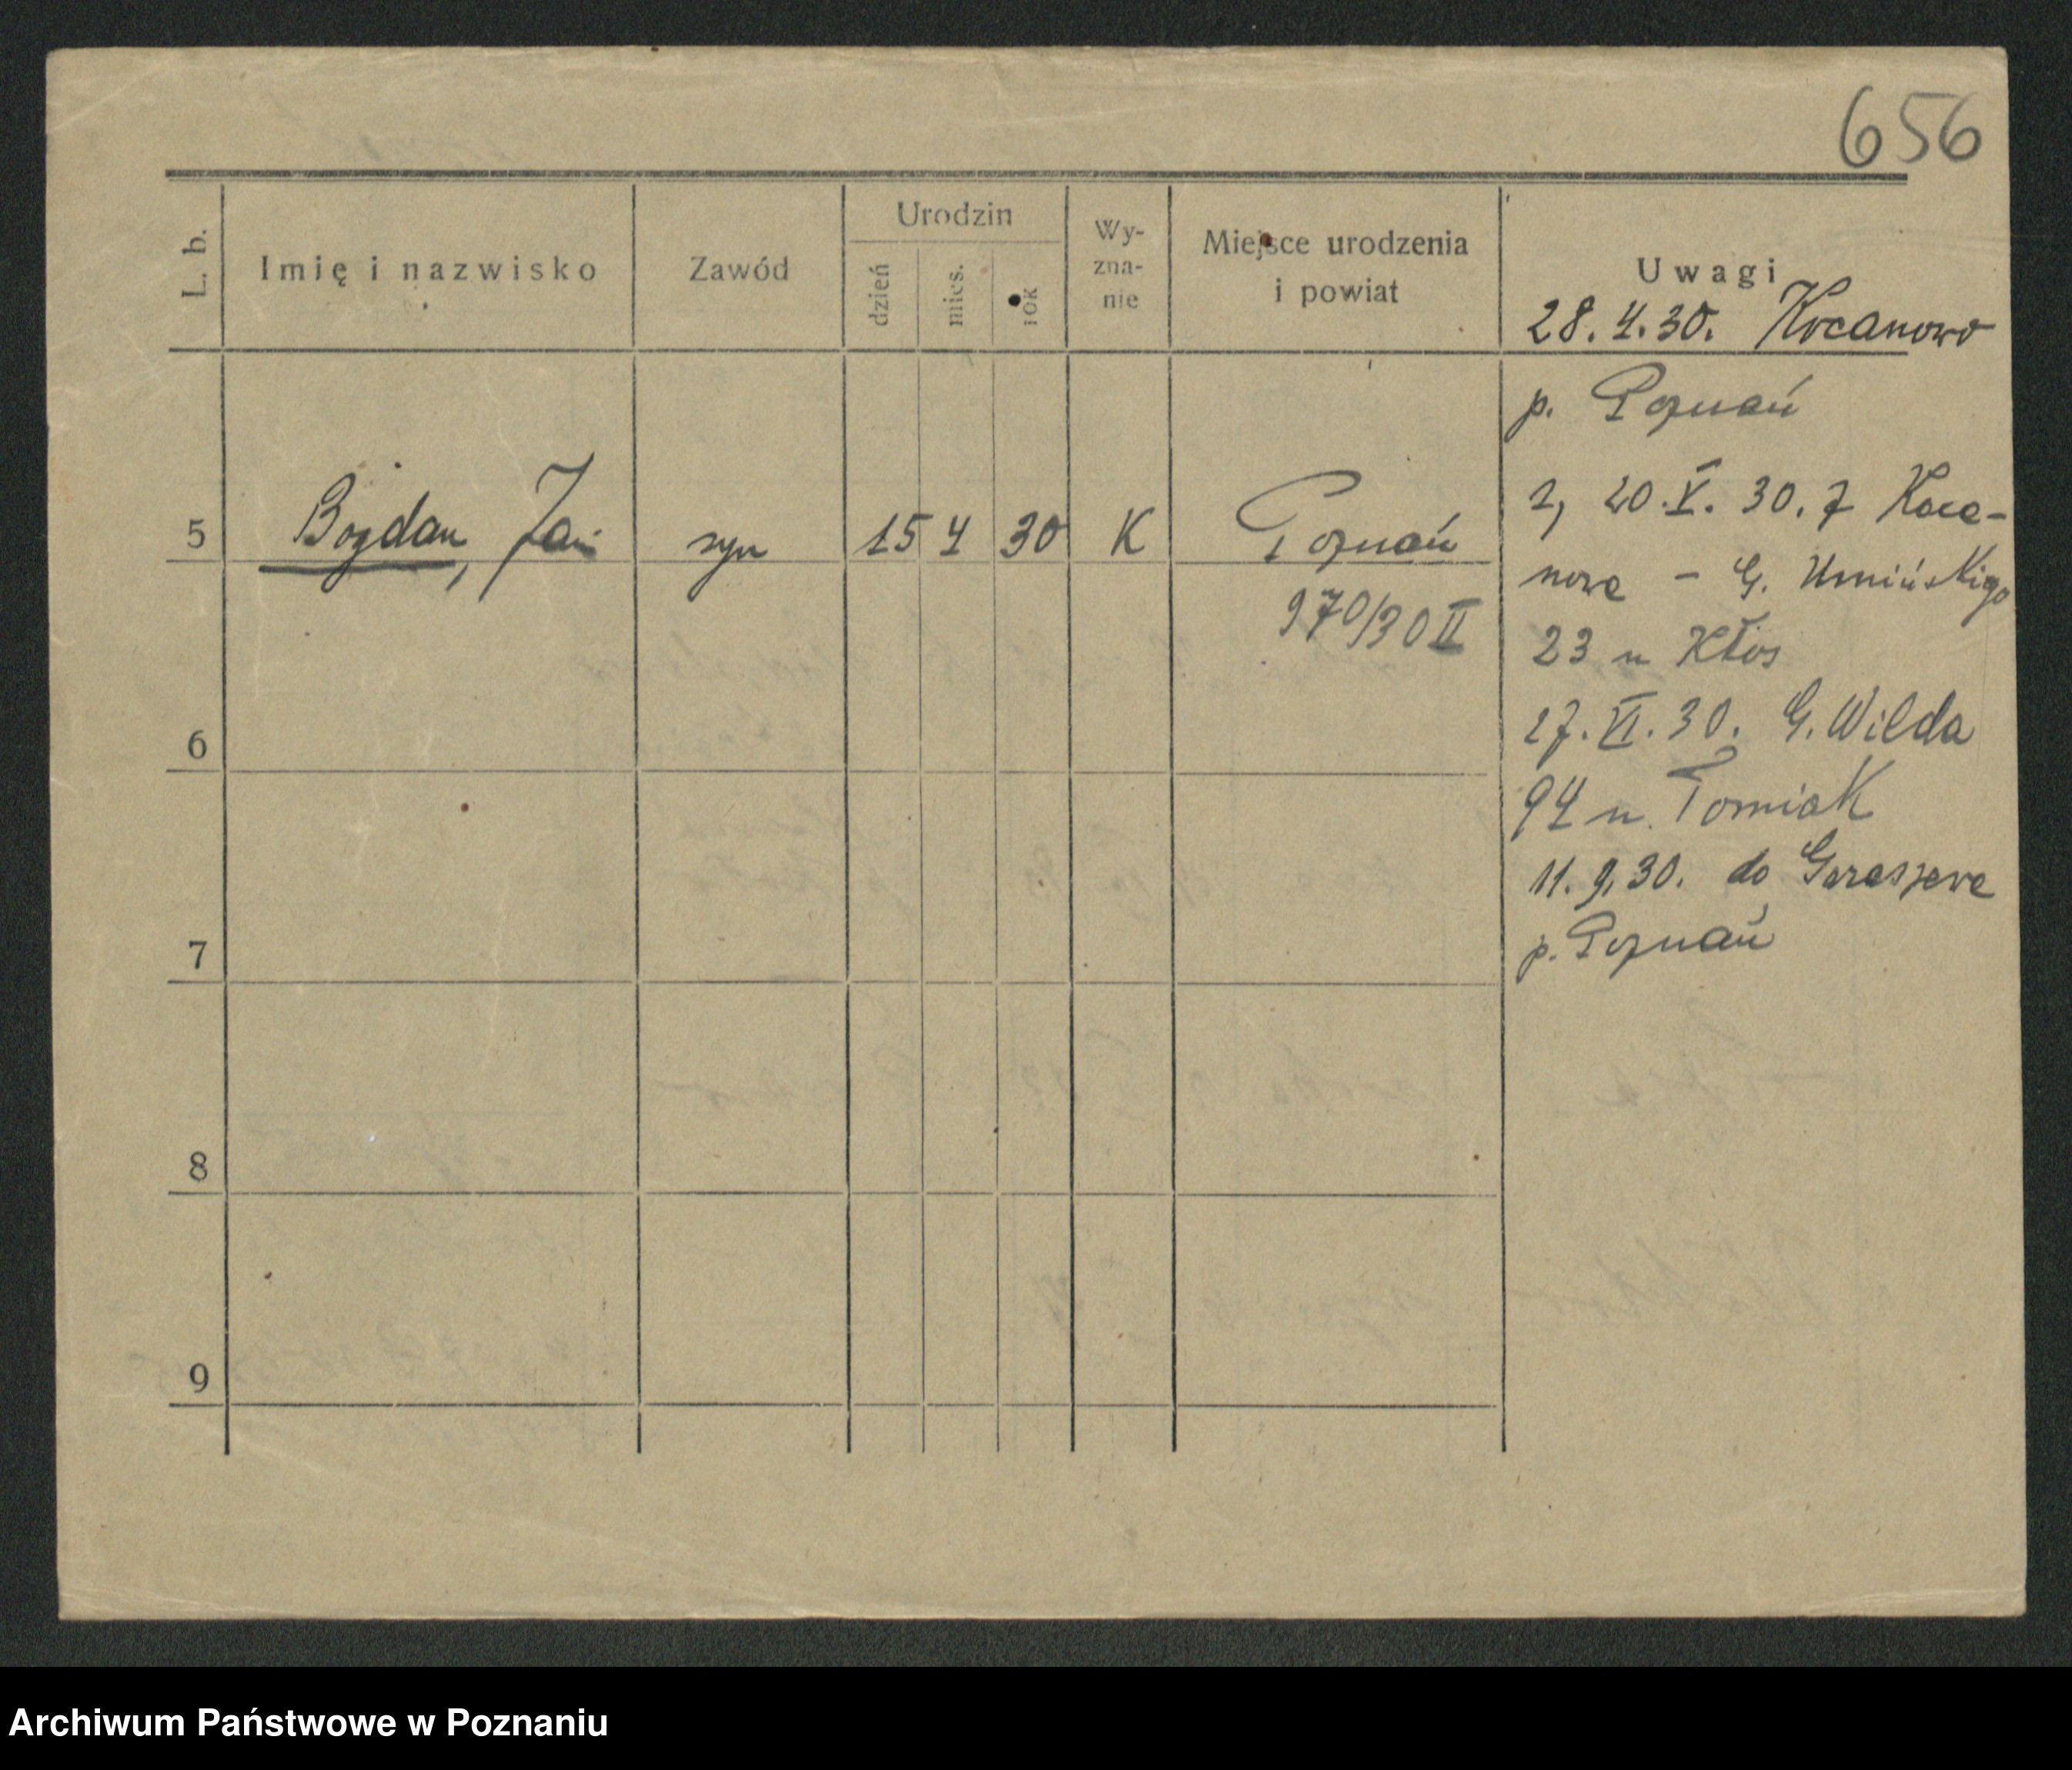 656
L. b.
Imię i nazwisko
Zawód
Urodzin
dzień
mies.
rok
Wy-
zna-
nie
Miejsce urodzenia
i powiat
Uwagi
28.4.30. Kocanowo
p. Poznań
5 Bogdan, Jan syn 15 4 30 K Poznań
970/30 II
2, 20.V.30. z Koca-
nowa - G. Umińskigo
23 u Kłos
27.VI.30. G. Wilda
94 u. Tomiak
11.9.30. do Garaszewa
p. Poznań
6
7
8
9
Archiwum Państwowe w Poznaniu